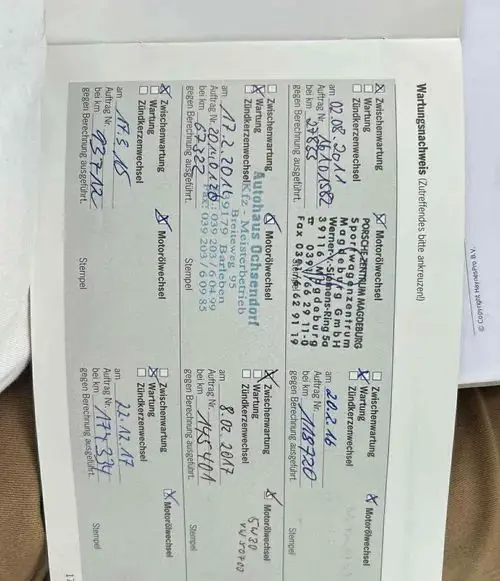 © Copyright Hermedia B.V.
Wartungsnachweis (Zutreffendes bitte ankreuzen!)
Zwischenwartung
Wartung
Motorölwechsel
Zündkerzenwechsel
am 02.08.2011
Auftrag Nr.
bei km 27855
gegen Berechnung ausgeführt.
Stempel
PORSCHE ZENTRUM MAGDEBURG
Sportwagenzentrum
Magdeburg GmbH
Werner-v.-Siemens-Ring 5a
39116 Magdeburg
Zwischenwartung
Wartung
Motorölwechsel
Zündkerzenwechsel
am 17.2.2014
Auftrag Nr.
bei km 67322
gegen Berechnung ausgeführt.
Stempel
Autohaus Ochsendorf
Kfz - Meisterbetrieb
Breiteweg 95
39179 Barleben
Fax: 039 203 / 6 09 85
Zwischenwartung
Wartung
Motorölwechsel
Zündkerzenwechsel
am 17.3.15
Auftrag Nr.
bei km
gegen Berechnung ausgeführt.
Stempel
Zwischenwartung
Wartung
Motorölwechsel
Zündkerzenwechsel
am 20.2.16
Auftrag Nr.
bei km 118720
gegen Berechnung ausgeführt.
Stempel
Zwischenwartung
Wartung
Motorölwechsel
Zündkerzenwechsel
5W30
VW 50700
am 8.02.2017
Auftrag Nr.
bei km 145401
gegen Berechnung ausgeführt.
Stempel
Zwischenwartung
Wartung
Motorölwechsel
Zündkerzenwechsel
am 22.12.17
Auftrag Nr.
bei km 174334
gegen Berechnung ausgeführt.
Stempel